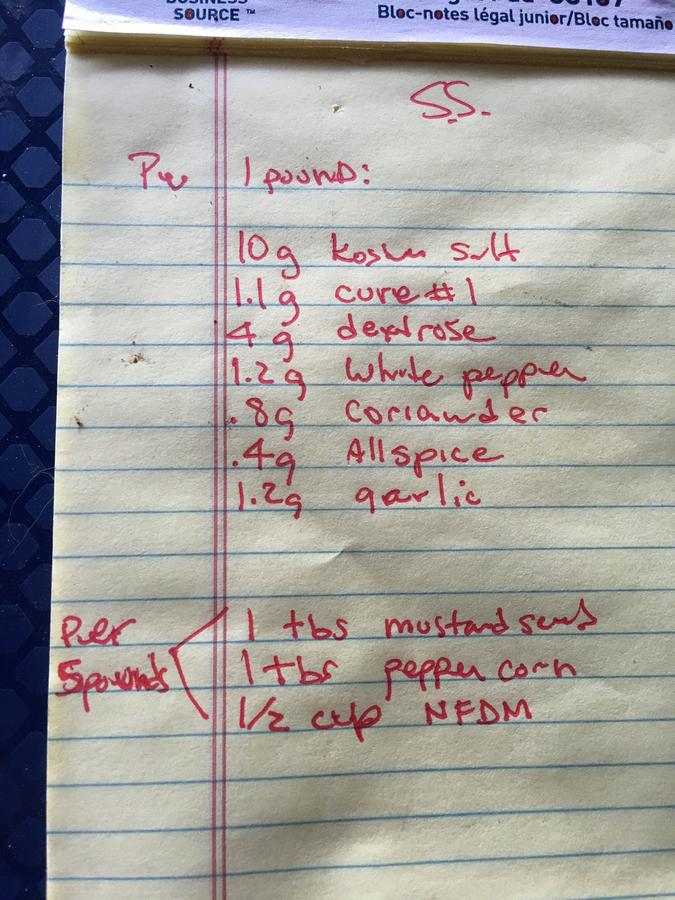 BUSINESS
SOURCE ™
Bloc-notes légal junior/Bloc tamaño
S.S.
Per 1 pound:
10g kosher salt
1.1g cure #1
4g dextrose
1.2g white pepper
.8g coriander
.4g Allspice
1.2g garlic
Per 5 pounds
1 tbs mustard seed
1 tbs pepper corn
1/2 cup NFDM